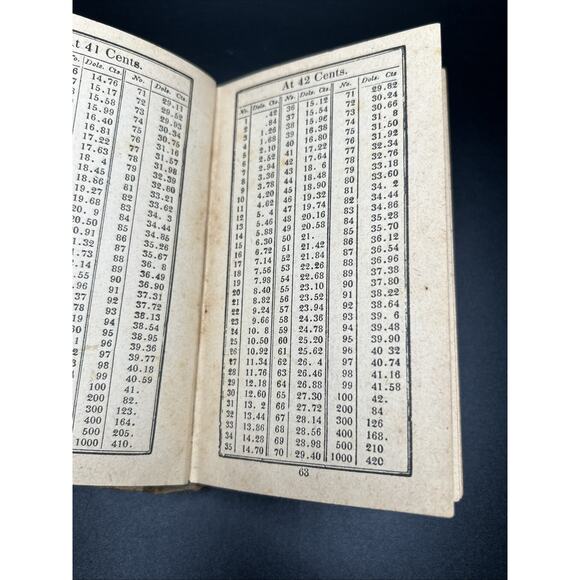 At 41 Cents.
No. Dols. Cts. No. Dols. Cts.
14.76 71 29.11
15.17 72 29.52
15.58 73 29.93
15.99 74 30.34
16.40 75 30.75
16.81 76 31.16
17.22 77 31.57
17.63 78 31.98
18. 4 79 32.39
18.45 80 32.80
18.86 81 33.21
19.27 82 33.62
19.68 83 34. 3
20. 9 84 34.44
20.50 85 34.85
20.91 86 35.26
21.32 87 35.67
21.73 88 36. 8
89 36.49
90 36.90
91 37.31
92 37.72
93 38.13
94 38.54
95 38.95
96 39.36
97 39.77
98 40.18
99 40.59
100 41.
200 82.
300 123.
400 164.
500 205.
1000 410.
At 42 Cents.
No. Dols. Cts No. Dols. Cts. No. Dols. Cts
1 .42 36 15.12 71 29.82
2 .84 37 15.54 72 30.24
3 1.26 38 15.96 73 30.66
4 1.68 39 16.38 74 31. 8
5 2.10 40 16.80 75 31.50
6 2.52 41 17.22 76 31.92
7 2.94 42 17.64 77 32.34
8 3.36 43 18. 6 78 32.76
9 3.78 44 18.48 79 33.18
10 4.20 45 18.90 80 33.60
11 4.62 46 19.32 81 34. 2
12 5. 4 47 19.74 82 34.44
13 5.46 48 20.16 83 34.86
14 5.88 49 20.58 84 35.28
15 6.30 50 21. 85 35.70
16 6.72 51 21.42 86 36.12
17 7.14 52 21.84 87 36.54
18 7.56 53 22.26 88 36.96
19 7.98 54 22.68 89 37.38
20 8.40 55 23.10 90 37.80
21 8.82 56 23.52 91 38.22
22 9.24 57 23.94 92 38.64
23 9.66 58 24.36 93 39. 6
24 10. 8 59 24.78 94 39.48
25 10.50 60 25.20 95 39.90
26 10.92 61 25.62 96 40 32
27 11.34 62 26. 4 97 40.74
28 11.76 63 26.46 98 41.16
29 12.18 64 26.88 99 41.58
30 12.60 65 27.30 100 42.
31 13. 2 66 27.72 200 84
32 13.44 67 28.14 300 126
33 13.86 68 28.56 400 168.
34 14.28 69 28.98 500 210
35 14.70 70 29.40 1000 420
63